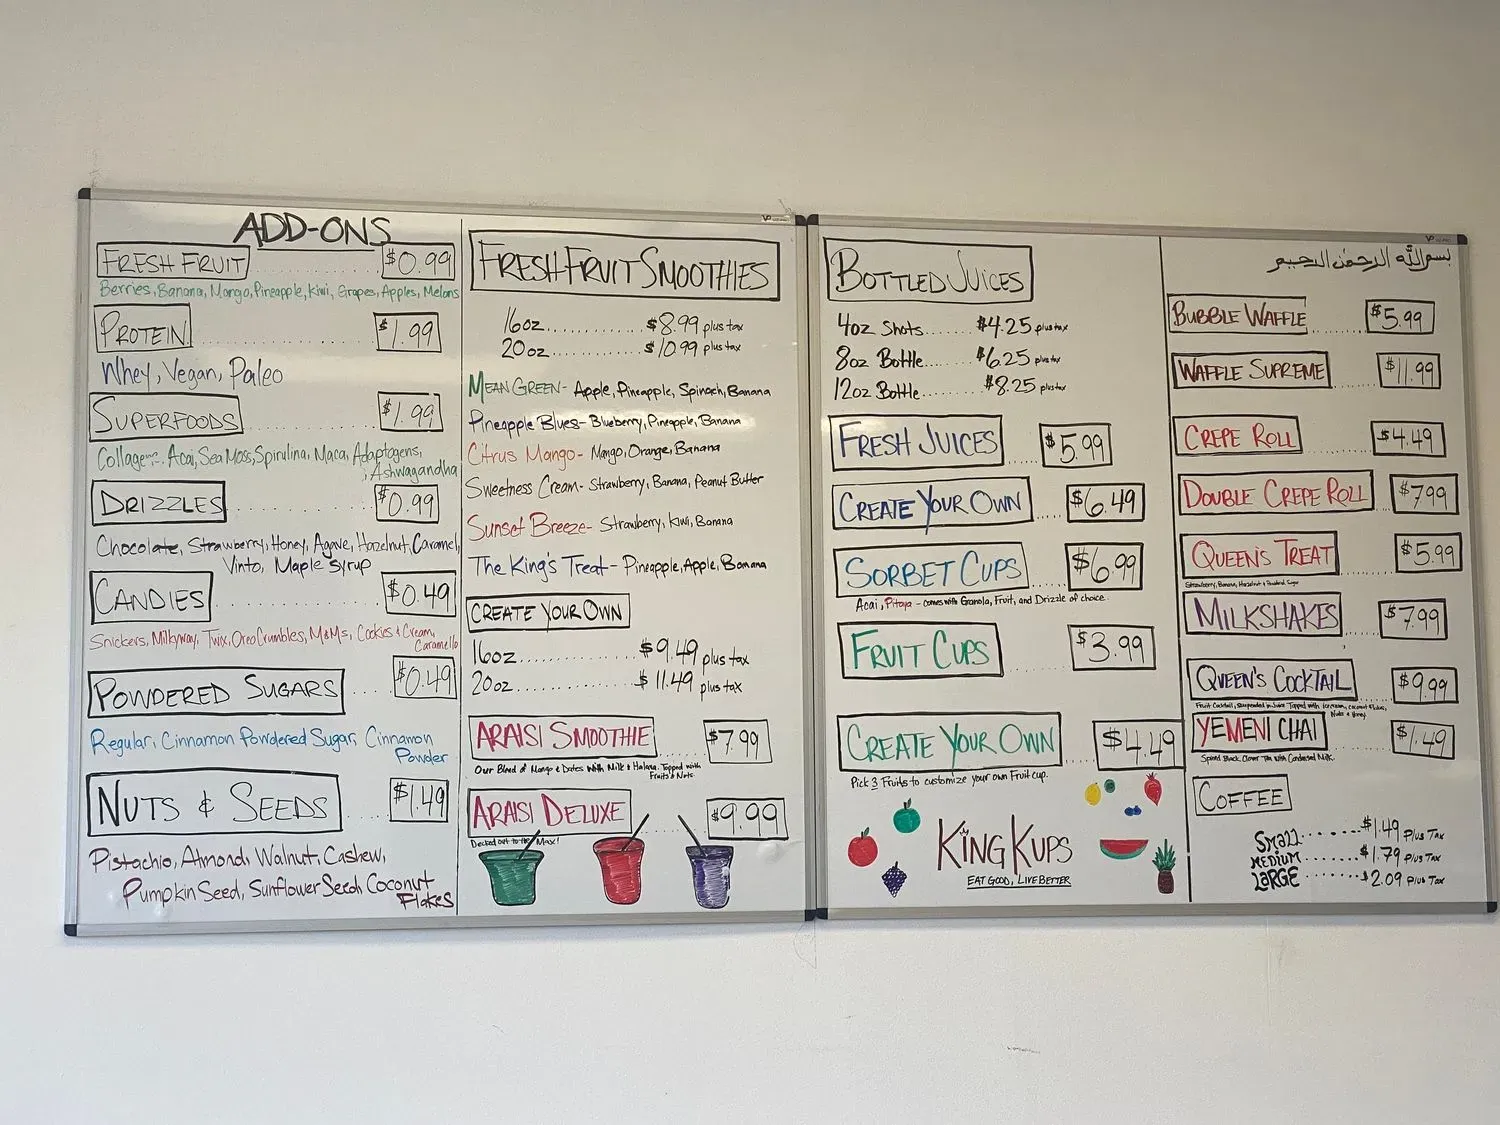 ADD-ONS
FRESH FRUIT ........... $0.99
Berries, Banana, Mango, Pineapple, Kiwi, Grapes, Apples, Melons
PROTEIN ........... $1.99
Whey, Vegan, Paleo
SUPERFOODS ........... $1.99
Collagen, Acai, Sea Moss, Spirulina, Maca, Adaptogens,
Ashwagandha
DRIZZLES ........... $0.99
Chocolate, Strawberry, Honey, Agave, Hazelnut, Caramel,
Vinto, Maple Syrup
CANDIES ........... $0.49
Snickers, Milkyway, Twix, Oreo Crumbles, M&M's, Cookies & Cream,
Caramello
POWDERED SUGARS .... $0.49
Regular, Cinnamon Powdered Sugar, Cinnamon
Powder
NUTS & SEEDS ..... $1.49
Pistachio, Almond, Walnut, Cashew,
Pumpkin Seed, Sunflower Seed, Coconut
Flakes
FRESH FRUIT SMOOTHIES
16oz ........... $8.99 plus tax
20oz ........... $10.99 plus tax
MEAN GREEN - Apple, Pineapple, Spinach, Banana
Pineapple Blues - Blueberry, Pineapple, Banana
Citrus Mango - Mango, Orange, Banana
Sweetness Cream - Strawberry, Banana, Peanut Butter
Sunset Breeze - Strawberry, Kiwi, Banana
The King's Treat - Pineapple, Apple, Banana
CREATE YOUR OWN
16oz ........... $9.49 plus tax
20oz ........... $11.49 plus tax
ARAISI SMOOTHIE ..... $7.99
Our Blend of Mango & Dates with Milk & Halawa. Topped with
Fruits & Nuts.
ARAISI DELUXE ..... $9.99
Decked out to the Max!
BOTTLED JUICES
4oz Shots ....... $4.25 plus tax
8oz Bottle ....... $6.25 plus tax
12oz Bottle ....... $8.25 plus tax
FRESH JUICES .... $5.99
CREATE YOUR OWN .... $6.49
SORBET CUPS .... $6.99
Acai, Pitaya - comes with Granola, Fruit, and Drizzle of choice.
FRUIT CUPS ..... $3.99
CREATE YOUR OWN .... $4.49
Pick 3 Fruits to customize your own Fruit cup.
KING KUPS
EAT GOOD, LIVE BETTER
بسم الله الرحمن الرحيم
BUBBLE WAFFLE ..... $5.99
WAFFLE SUPREME ..... $11.99
CREPE ROLL ..... $4.49
DOUBLE CREPE ROLL .... $7.99
QUEEN'S TREAT ..... $5.99
Strawberry, Banana, Hazelnut & Powdered Sugar
MILKSHAKES ..... $7.99
QUEEN'S COCKTAIL ..... $9.99
Fruit Cocktail, Suspended in Juice Topped with Ice cream, Coconut Flakes,
Nuts & Honey.
YEMENI CHAI ..... $1.49
Spiced Black, Clover Tea with Condensed Milk.
COFFEE
SMALL ....... $1.49 Plus Tax
MEDIUM ....... $1.79 Plus Tax
LARGE ....... $2.09 Plus Tax